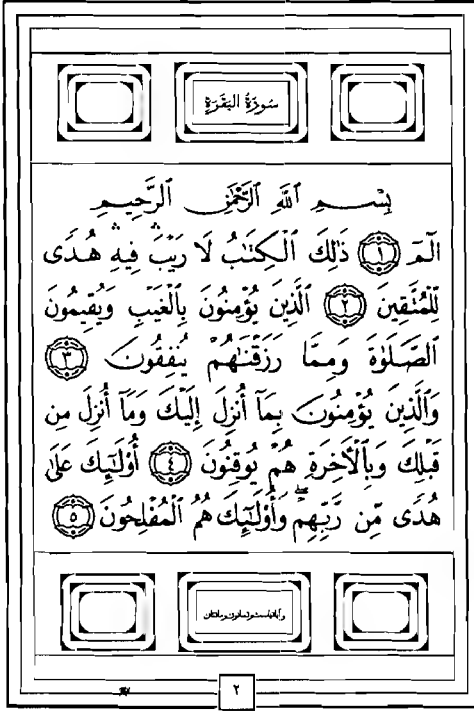 سُورَةُ الْبَقَرَةِ
بِسْمِ ٱللَّهِ ٱلرَّحْمَٰنِ ٱلرَّحِيمِ
الٓمٓ ١ ذَٰلِكَ ٱلْكِتَٰبُ لَا رَيْبَ ۛ فِيهِ ۛ هُدًى
لِّلْمُتَّقِينَ ٢ ٱلَّذِينَ يُؤْمِنُونَ بِٱلْغَيْبِ وَيُقِيمُونَ
ٱلصَّلَوٰةَ وَمِمَّا رَزَقْنَٰهُمْ يُنفِقُونَ ٣
وَٱلَّذِينَ يُؤْمِنُونَ بِمَآ أُنزِلَ إِلَيْكَ وَمَآ أُنزِلَ مِن
قَبْلِكَ وَبِٱلْأَخِرَةِ هُمْ يُوقِنُونَ ٤ أُو۟لَٰٓئِكَ عَلَىٰ
هُدًى مِّن رَّبِّهِمْ ۖ وَأُو۟لَٰٓئِكَ هُمُ ٱلْمُفْلِحُونَ ٥
وآياتها ست وثمانون ومائتان
٢